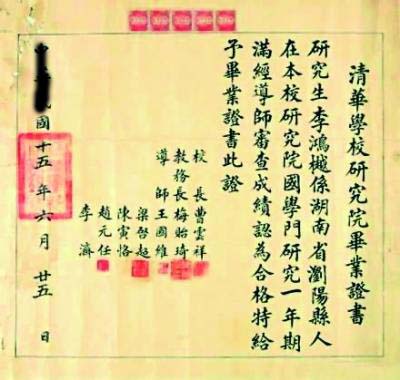 清華學校研究院畢業證書
研究生李鴻樾係湖南省瀏陽縣人
在本校研究院國學門研究一年期
滿經導師審查成績認為合格特給
予畢業證書此證
校長曹雲祥
教務長梅貽琦
導師王國維
梁啓超
陳寅恪
趙元任
李濟
國十五年六月廿五日